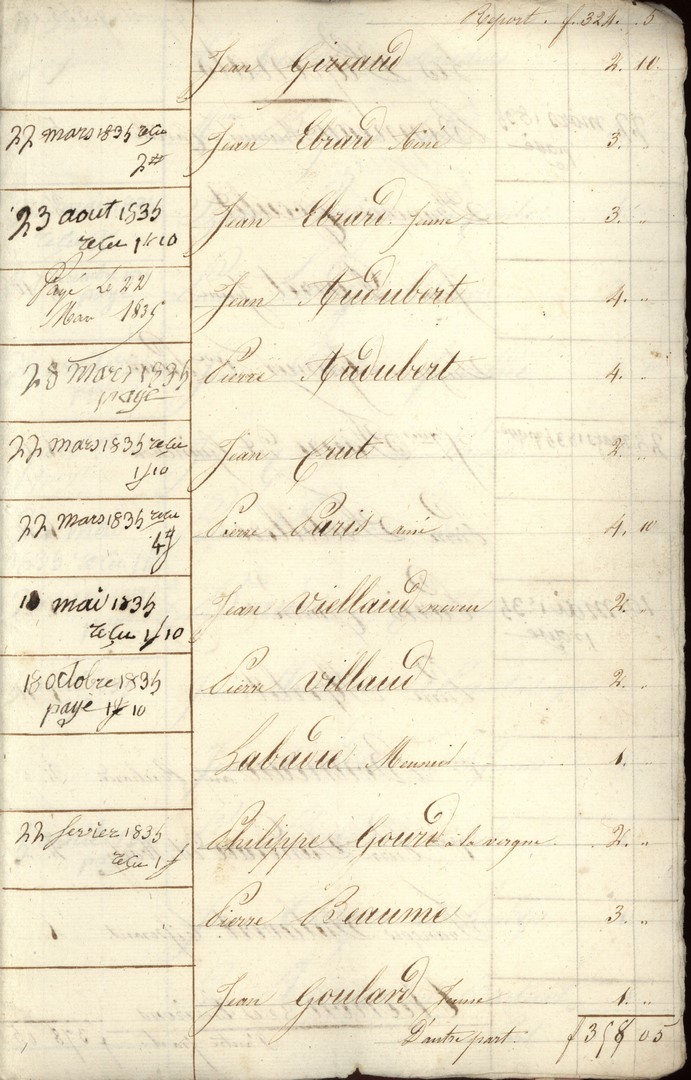 Report. f. 324. 5
Jean Giveaud 2. 10.
22 mars 1835 reçu
2#
Jean Ebrard ainé 3. "
23 aout 1835
reçu 1f 10
Jean Ebrard jeune 3. "
Payé le 22
Mars 1835
Jean Audubert 4. "
28 mars 1835
payé
Pierre Audubert 4. "
22 mars 1835 reçu
1f 10
Jean Crut 2. "
22 mars 1835 reçu
4f
Pierre Paris ainé 4. 10
10 mai 1835
reçu 1f 10
Jean Viellaud neveu 2. "
18 octobre 1835
payé 1f 10
Pierre Villaud 2. "
Labadie Meunier 1. "
22 fevrier 1835
reçu 1f
Philippe Gourd à la vergne. 2. "
Pierre Beaume 3. "
Jean Goulard jeune 1. "
D'autre part. f 358 05